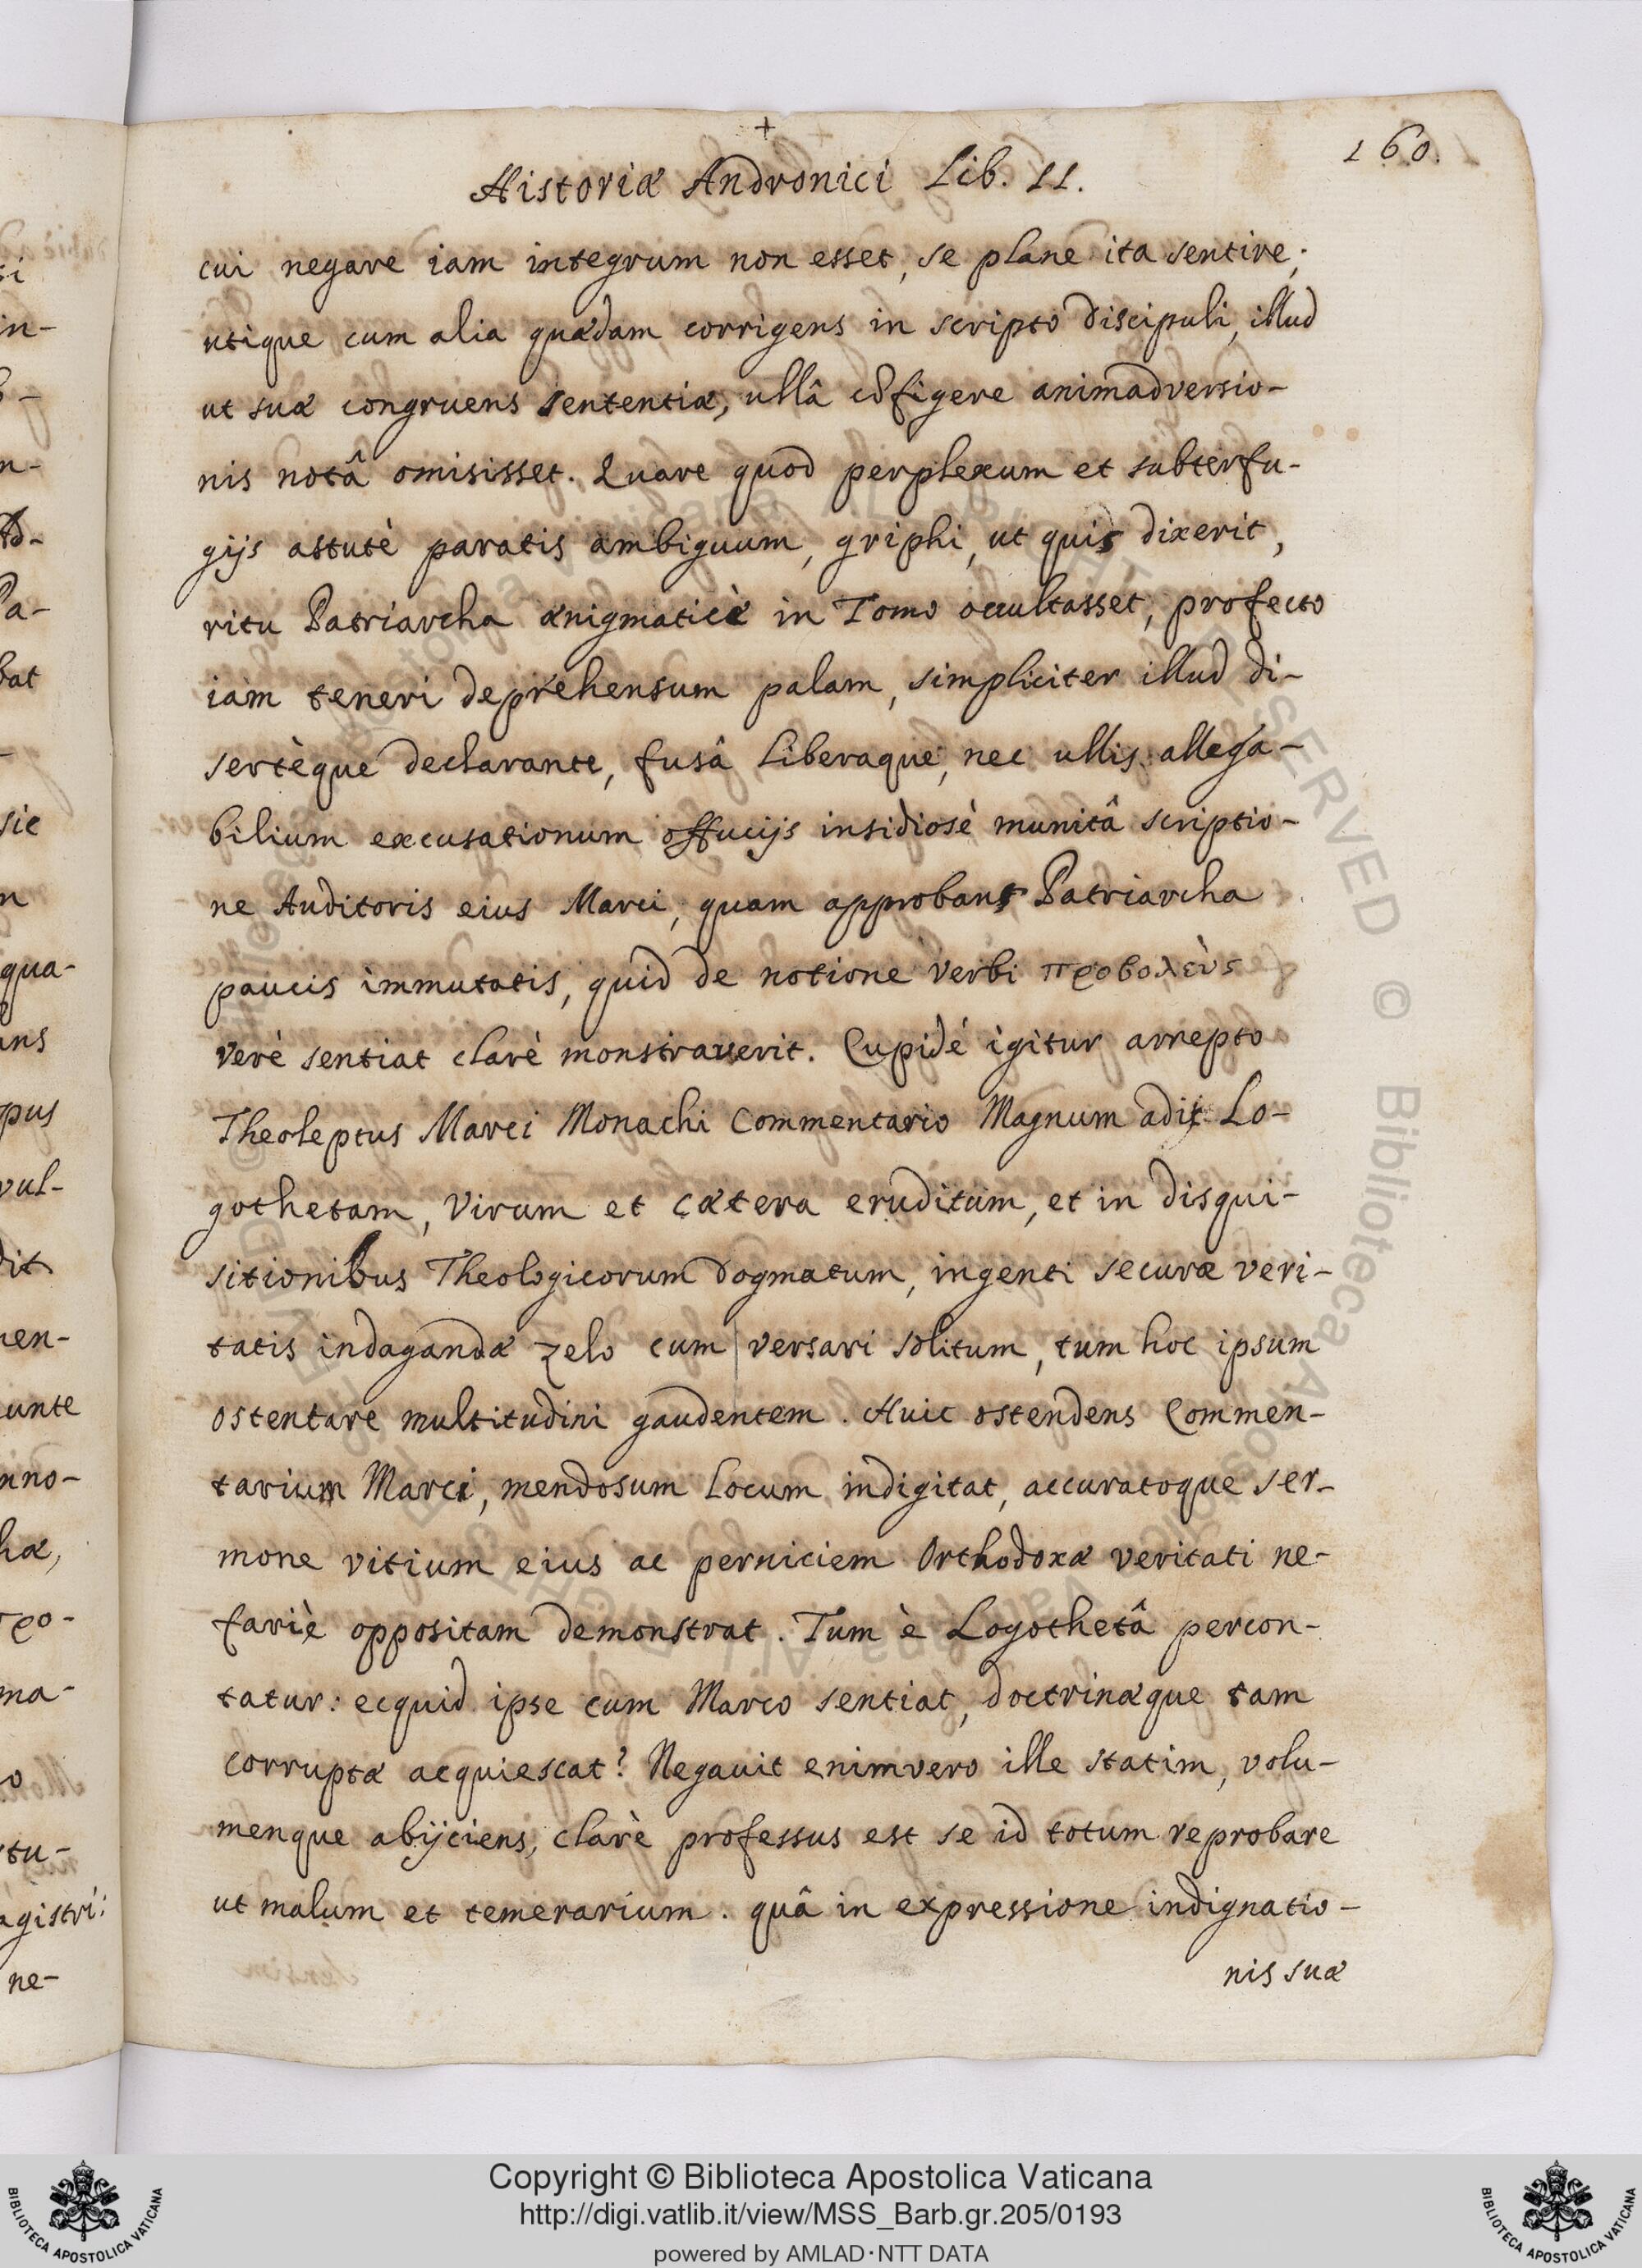 +
160.
Historiæ Andronici Lib. II.
cui negare iam integrum non esset, se plane ita sentire;
utique cum alia quædam corrigens in scripto discipuli, illud
ut suæ congruens sententiæ, ullâ cõfigere animadversio-
nis notâ omisisset. Quare quod perplexum et subterfu-
gijs astutè paratis ambiguum, griphi, ut quis dixerit,
ritu Patriarcha ænigmaticè in Tomo occultasset, profecto
iam teneri deprehensum palam, simpliciter illud di-
sertèque declarante, fusâ liberaque, nec ullis allega-
bilium excusationum offucijs insidiosè munitâ scriptio-
ne Auditoris eius Marci, quam approbans Patriarcha
paucis immutatis, quid de notione verbi προβολεὺς
verè sentiat clarè monstraverit. Cupidé igitur arrepto
Theoleptus Marci Monachi Commentario Magnum adit Lo-
gothetam, Virum et cætera eruditum, et in disqui-
sitionibus Theologicorum dogmatum, ingenti securæ veri-
tatis indagandæ zelo cum versari solitum, tum hoc ipsum
ostentare multitudini gaudentem. Huic ostendens Commen-
tarium Marci, mendosum locum indigitat, accuratoque ser-
mone vitium eius ac perniciem Orthodoxæ veritati ne-
fariè oppositam demonstrat. Tum è Logothetâ percon-
tatur: ecquid ipse cum Marco sentiat, doctrinæque tam
corruptæ acquiescat? Negauit enimvero ille statim, volu-
menque abijciens, clarè professus est se id totum reprobare
ut malum et temerarium. quâ in expressione indignatio-
nis suæ
Copyright © Biblioteca Apostolica Vaticana
http://digi.vatlib.it/view/MSS_Barb.gr.205/0193
powered by AMLAD·NTT DATA
BIBLIOTECA APOSTOLICA VATICANA
BIBLIOTECA APOSTOLICA VATICANA